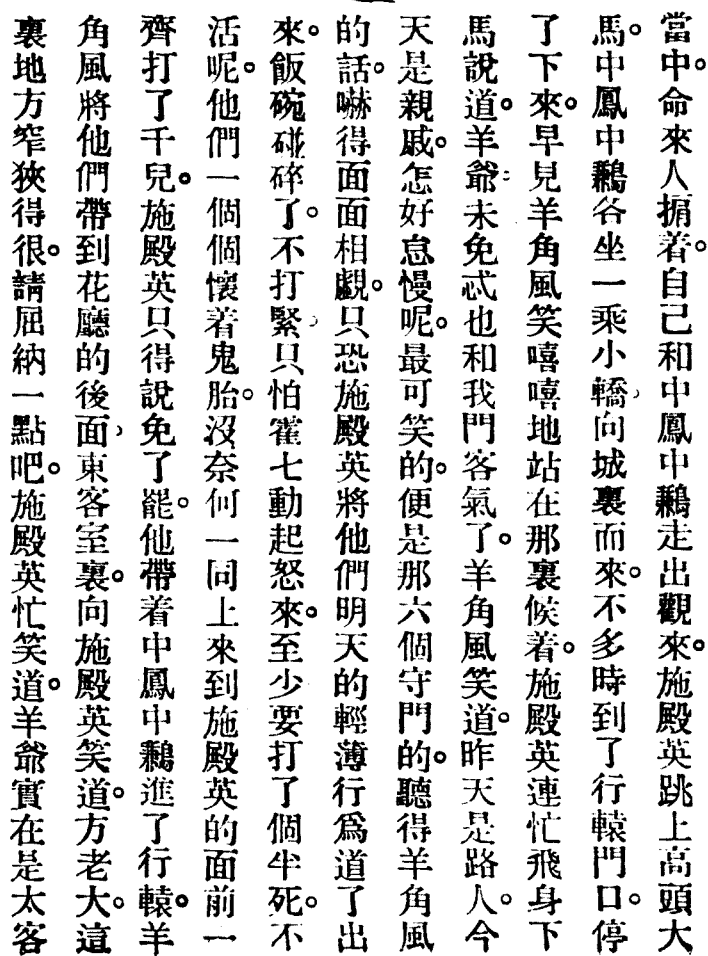 當中。命來人掮着。自己和中鳳中鶼走出觀來。施殿英跳上高頭大
馬。中鳳中鶼各坐一乘小轎、向城裏而來。不多時到了行轅門口。停
了下來。早見羊角風笑嘻嘻地站在那裏候着。施殿英連忙飛身下
馬說道。羊爺未免忒也和我門客氣了。羊角風笑道。昨天是路人。今
天是親戚。怎好怠慢呢。最可笑的。便是那六個守門的。聽得羊角風
的話。嚇得面面相覷。只恐施殿英將他們明天的輕薄行爲道了出
來。飯碗碰碎了。不打緊、只怕霍七動起怒來。至少要打了個半死。不
活呢。他們一個個懷着鬼胎。沒奈何一同上來到施殿英的面前一
齊打了千兒。施殿英只得說免了罷。他帶着中鳳中鶼進了行轅。羊
角風將他們帶到花廳的後面、東客室裏。向施殿英笑道。方老大。這
裏地方窄狹得很。請屈納一點吧。施殿英忙笑道。羊爺實在是太客